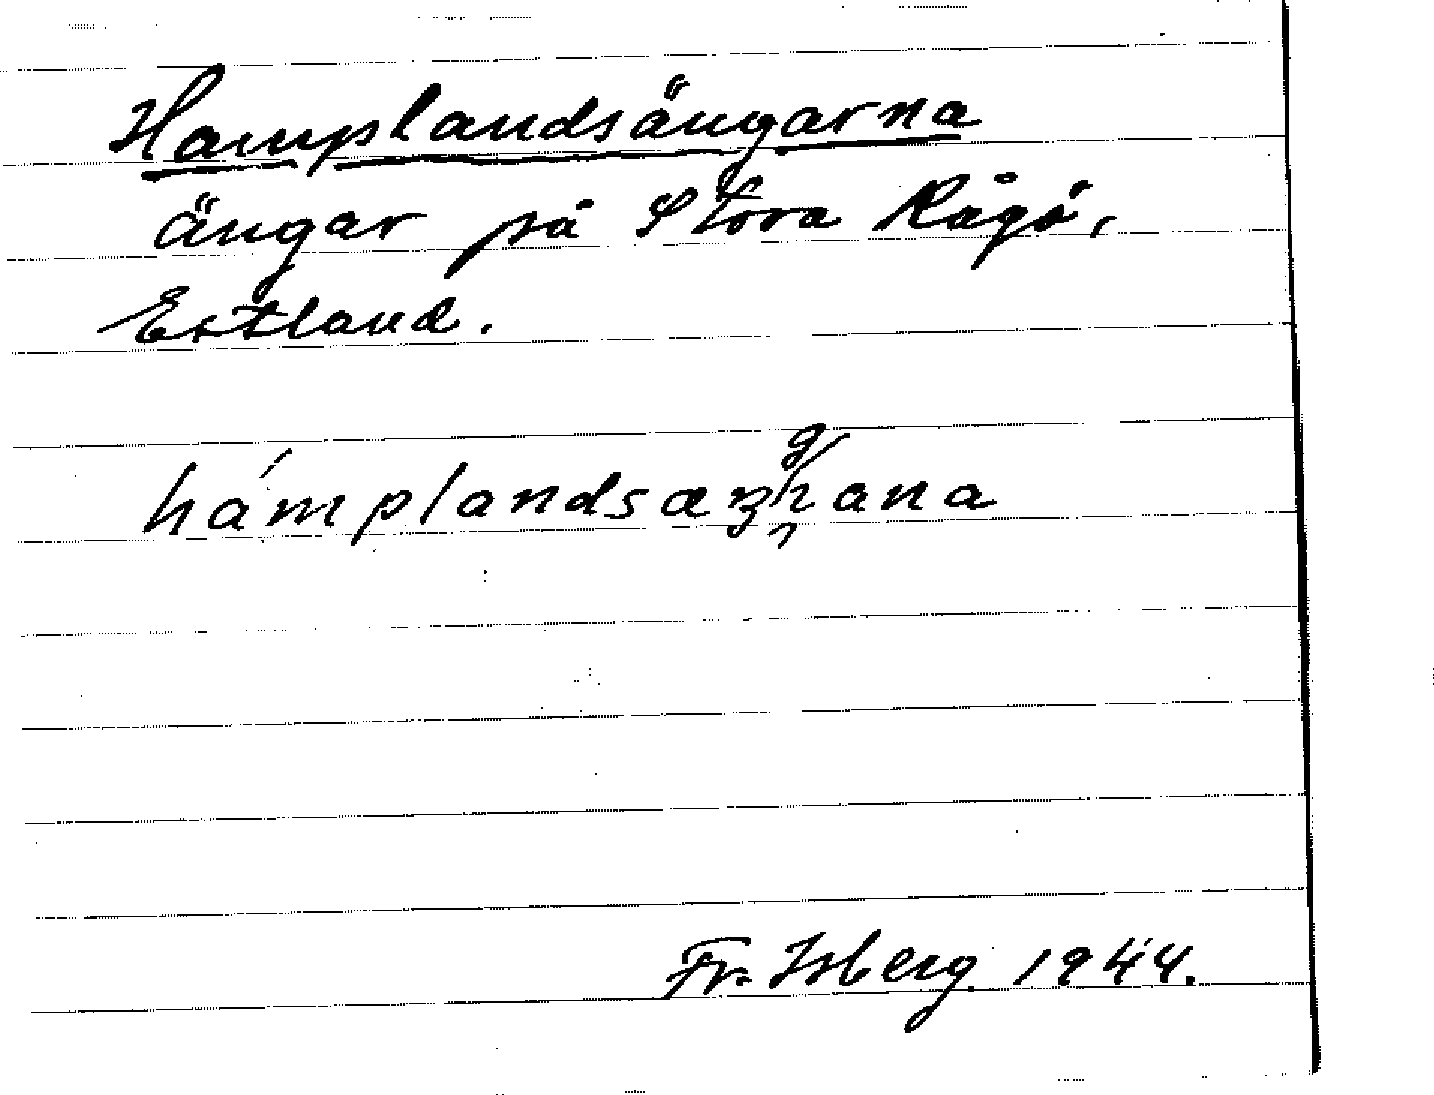 Hamplandsängarna
ängar på Stora Rågö,
Estland.
Fr. Isberg 1944.